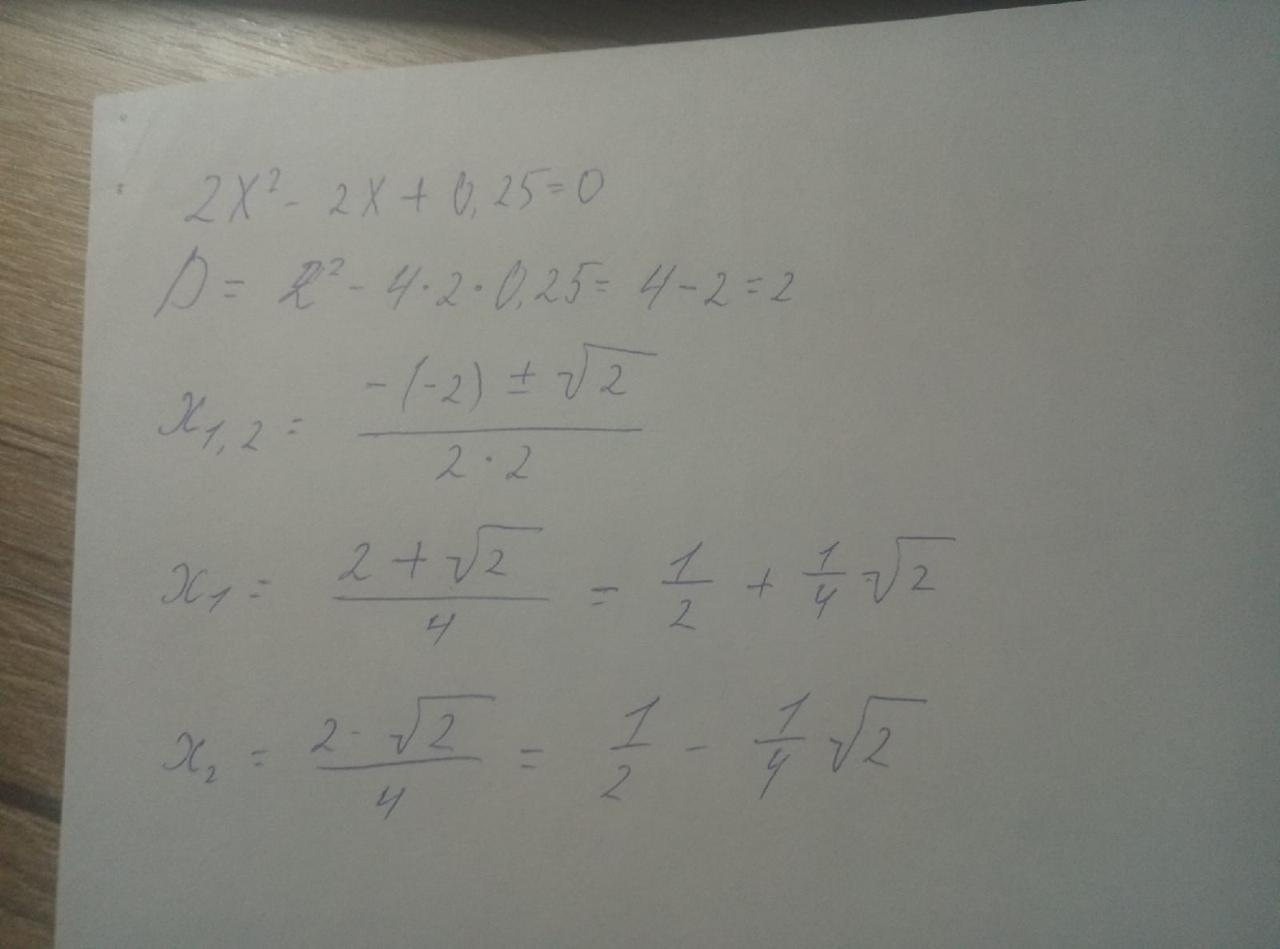 2x² - 2x + 0,25 = 0
D = 2² - 4·2·0,25 = 4 - 2 = 2
x₁,₂ = (-(-2) ± √2) / (2·2)
x₁ = (2 + √2) / 4 = 1/2 + 1/4 √2
x₂ = (2 - √2) / 4 = 1/2 - 1/4 √2